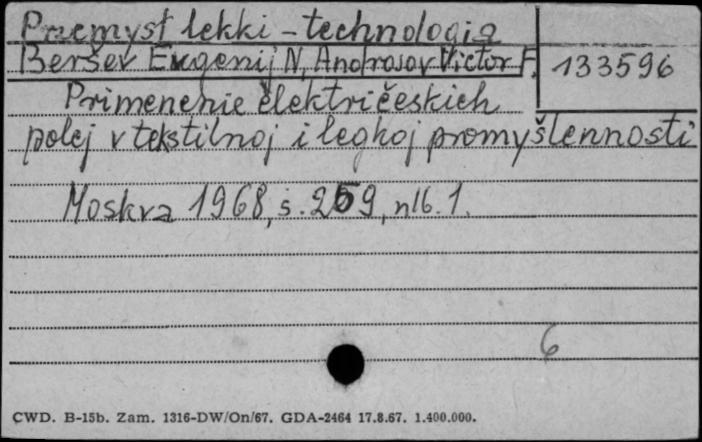 Przemysł lekki - technologia
Beršev Evgenij N, Androsov Victor F.
133596
Primenenie èlektričeskich
polej v tekstilnoj i legkoj promyšlennosti
Moskva 1968, s. 259, nlb. 1.
6
CWD. B-15b. Zam. 1316-DW/On/67. GDA-2464 17.8.67. 1.400.000.